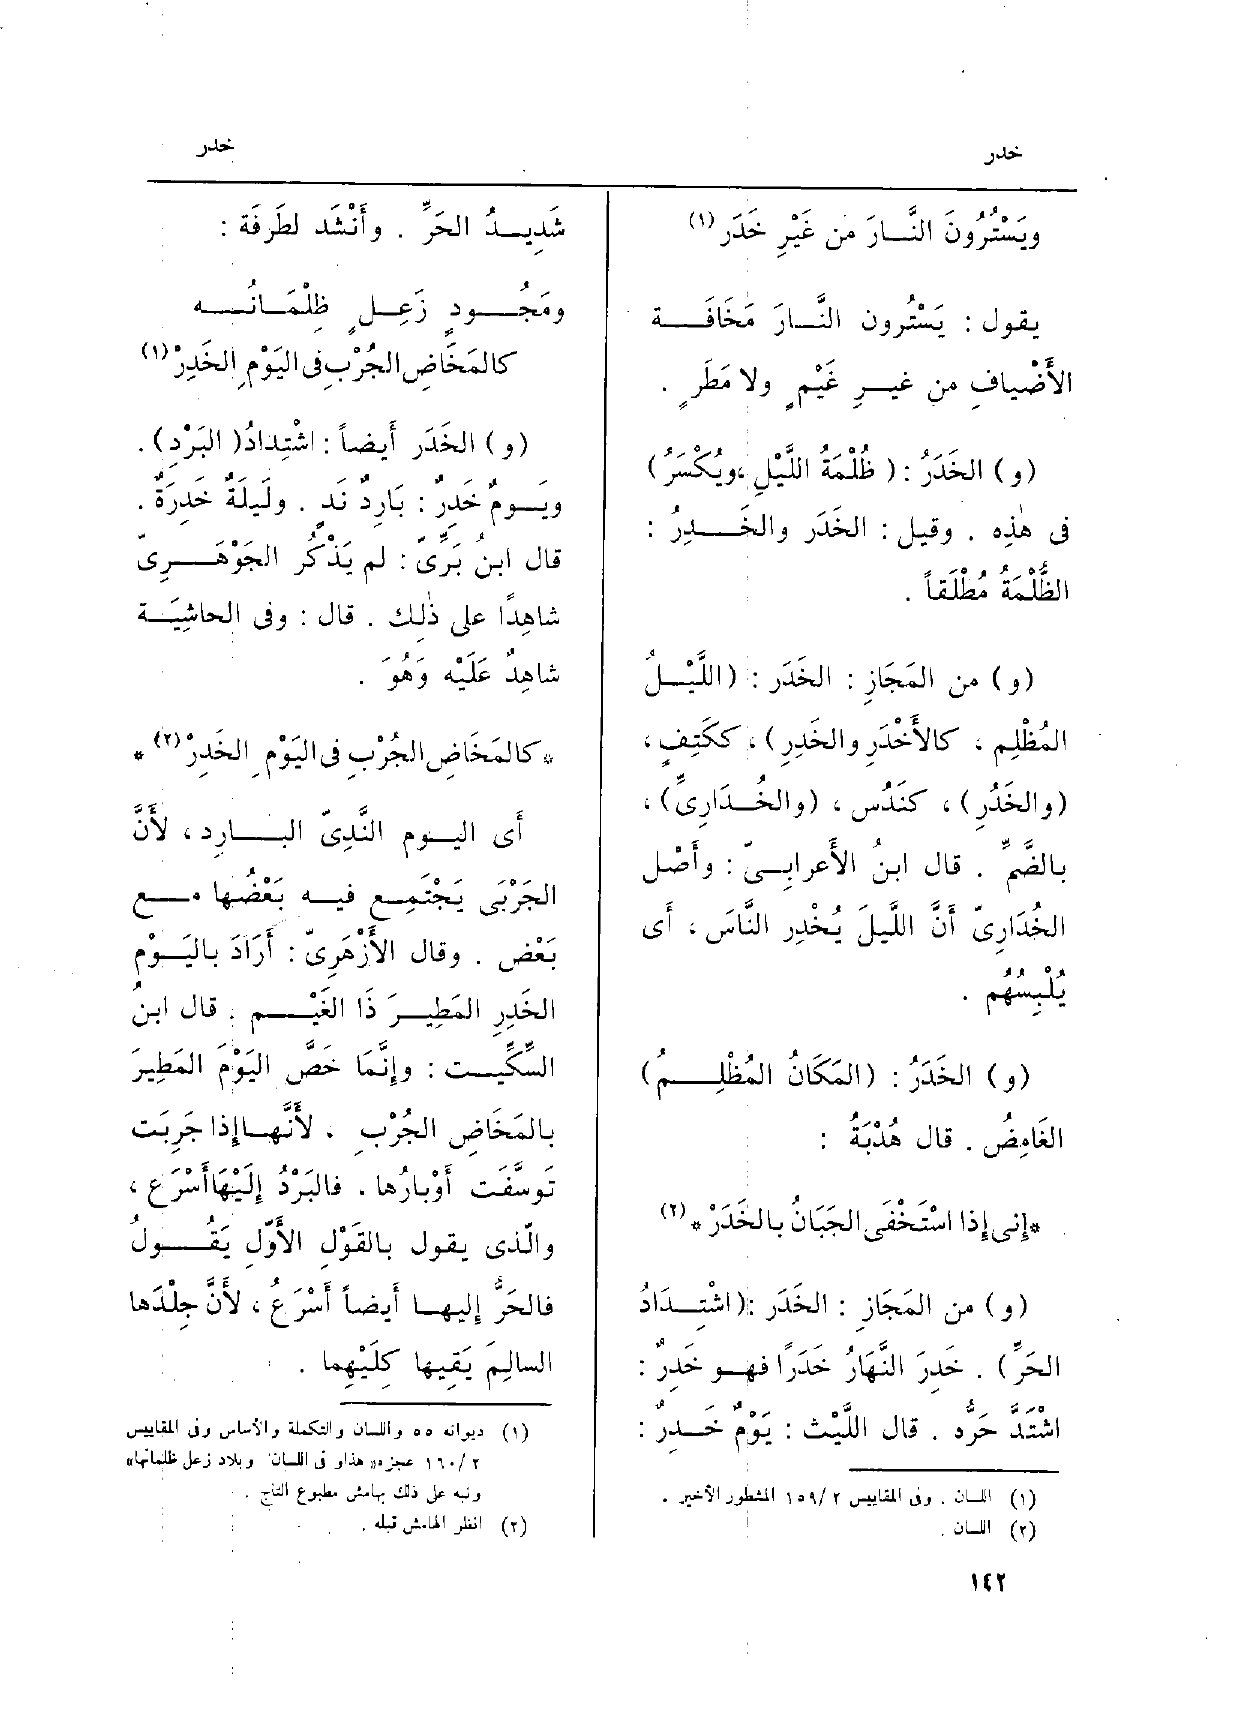 خدر
خدر
ويَسْتُرُونَ النَّــارَ من غَيْرِ خَدَر (١)
يقول : يَسْتُرون النَّــارَ مَخَافَــــة
الأَضْيافِ من غيــرِ غَيْمٍ ولا مَطَرٍ .
(و) الخَدَرُ : ( ظُلْمَةُ اللَّيْلِ ، ويُكْسَرُ )
فى هٰذِه . وقيل : الخَدَر والخَــــدِرُ :
الظُّلْمَةُ مُطْلَقاً .
(و) من المَجَازِ : الخَدَر : (اللَّيْــلُ
المُظْلِم ، كالأَخْدَرِ والخَدِرِ ) ، ككَتِفٍ ،
(والخَدُرِ ) ، كنَدُس ، (والخُــدَارِىِّ) ،
بالضَّمِّ . قال ابنُ الأَعرابِــىّ : وأَصْل
الخُدَارِىّ أَنَّ اللَّيلَ يُخْدِر النَّاسَ ، أَى
يُلْبِسُهُم .
(و) الخَدَرُ : (المَكَانُ المُظْلِــــمُ)
الغَامِضُ . قال هُدْبَةُ :
*إِنى إِذا اسْتَخْفَى الجَبَانُ بالخَدَرْ* (٢)
(و) من المَجَازِ : الخَدَر :( اشْتِــدَادُ
الحَرِّ ) . خَدِرَ النَّهَارُ خَدَرًا فهــو خَدِرٌ :
اشْتَدَّ حَرُّه . قال اللَّيْثُ : يَوْمٌ خَــدِرٌ :
(١) اللسان . وفى المقاييس ٢/ ١٥٩ المشطور الأخير .
(٢) اللسان .
شَدِيــدُ الحَرِّ . وأَنْشَد لطَرفَة :
ومَجُــــودٍ زَعِــلٍ ظِلْمَـانُــــه
كالمَخَاضِ الجُرْبِ فى اليَوْمِ الخَدِرْ (١)
(و ) الخَدَر أَيضاً : اشْتِدادُ( البَرْدِ) .
ويَــومٌ خَدِرٌ : بَارِدٌ نَدٍ . ولَيلَةٌ خَدِرَةٌ .
قال ابنُ بَرِّىّ : لم يَذْكُر الجَوْهَــــرِىّ
شاهِدًا على ذٰلك . قال : وفى الحاشِيَــة
شاهِدٌ عَلَيْه وَهُوَ .
*كالمَخَاضِ الجُرْبِ فى اليَوْمِ الخَدِرْ (٢)*
أَى اليــوم النَّدِىّ البـــــارِد ، لأَنَّ
الجَرْبَى يَجْتَمِــع فيــه بَعْضُها مــع
بَعْض . وقال الأَزْهَرِىّ : أَرَادَ باليَــوْم
الخَدِرِ المَطِيــرَ ذَا الغَيْــــم . قال ابنُ
السِّكِّيــت : وإِنَّمَا خَصَّ اليَوْمَ المَطِيرَ
بالمَخَاضِ الجُرْبِ . لأَنَّهــا إِذا جَرِبَت
تَوسَّفَت أَوْبارُها . فالبَرْدُ إِلَيْهَا أَسْرَع ،
والَّذى يقول بالقَوْلِ الأَوّلِ يَقُــــولُ
فالحَرُّ إِليهــا أَيضاً أَسْرَعُ ، لأَنَّ جِلْدَها
السالِمَ يَقِيها كِلَيْهِما .
(١) ديوانه ٥٥ واللسان والتكملة والأساس وفى المقاييس
٢/ ١٦٠ عجزه هذا و فى اللسان وبلاد زعل ظلمانها»
ونبه على ذلك بهامش مطبوع التاج .
(٢) انظر الهامش قبله .
١٤٢